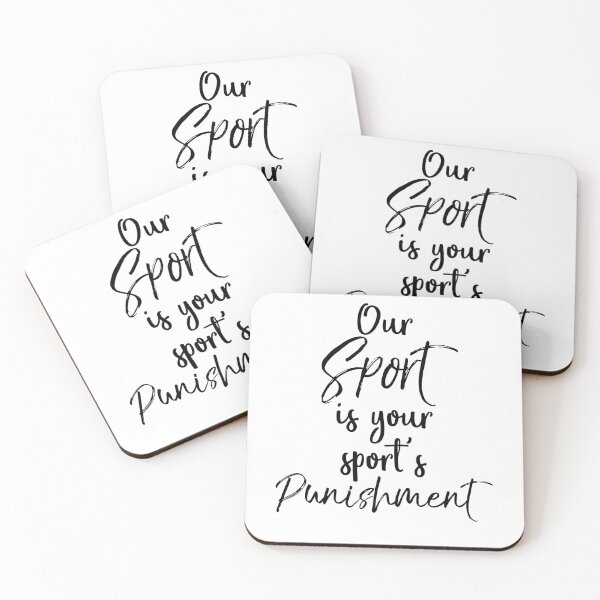 Our
Sport
is your
Our
Sport
is your
sport's
Our
Sport
is your
sport's
Punishm
Our
Sport
is your
sport's
Punishment